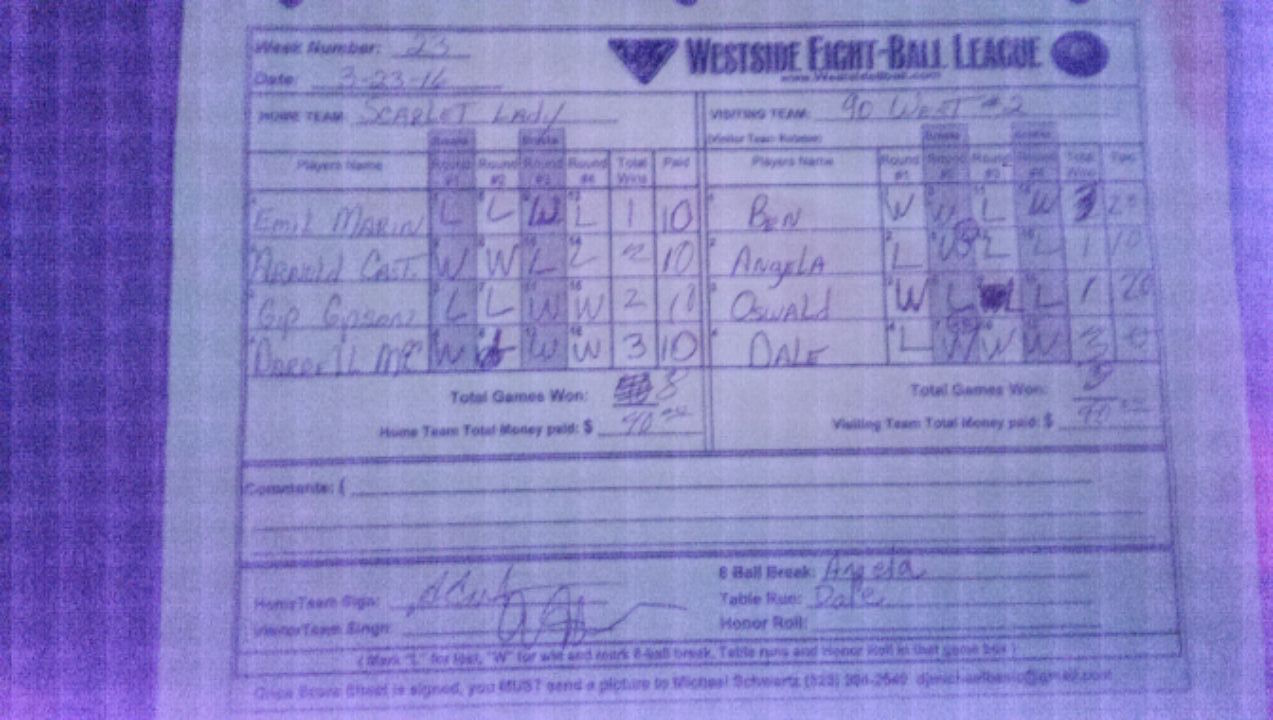 Week Number: 23
WESTSIDE EIGHT-BALL LEAGUE
Date: 3-23-16
HOME TEAM: SCARLET LADY
VISITING TEAM: 90 WEST #2
Players Name Round #1 Round #2 Round #3 Round #4 Total Wins Paid
Players Name Round #1 Round #2 Round #3 Round #4 Total Wins Paid
Emil Marin L L W L 1 10
BEN W W L W 3 20
Arnold Cast. W W L L 2 10
ANGELA L W L L 1 10
Gip Gipson L L W W 2 10
OSWALd W L L L 1 20
Darrell Mc W W W 3 10
DALE L W W W 3
Total Games Won: 8
Total Games Won:
Home Team Total Money paid: $
Visiting Team Total Money paid: $
Comments: (
8 Ball Break: Angela
Home Team Sign:
Table Run: Dale
Visitor Team Singn:
Honor Roll:
( Mark "L" for lost, "W" for win and mark 8-Ball break, Table runs and Honor Roll in that game box )
Once Score Sheet is signed, you MUST send a picture to Michael Schwartz